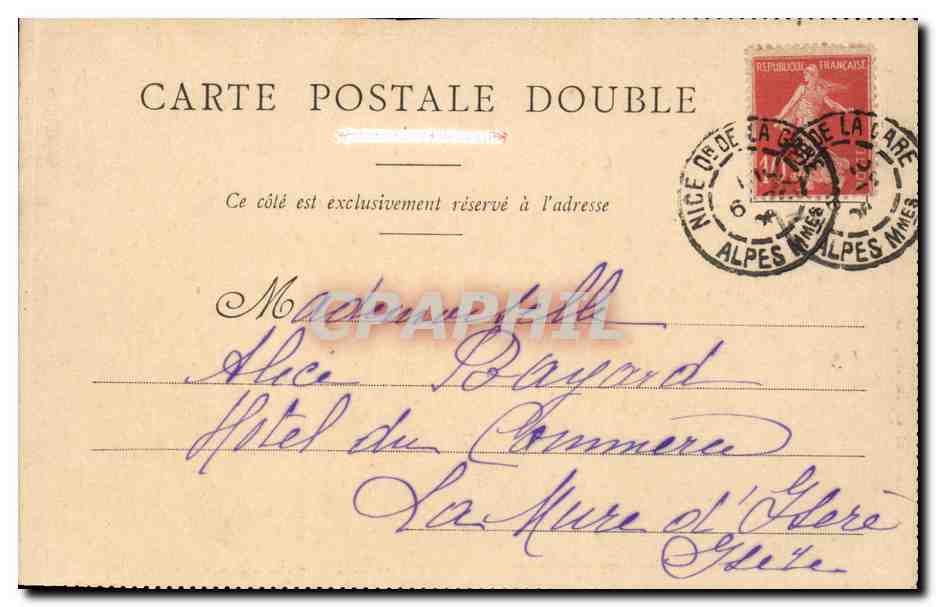 CARTE POSTALE DOUBLE
REPUBLIQUE FRANÇAISE
10
NICE Qr DE LA GARE
DE LA GARE
6
ALPES Mmes
ALPES Mmes
Ce côté est exclusivement réservé à l'adresse
Mademoiselle
CPAPHIL
Alice Bayard
Hôtel du Commerce
La Mure d'Isère
Isère